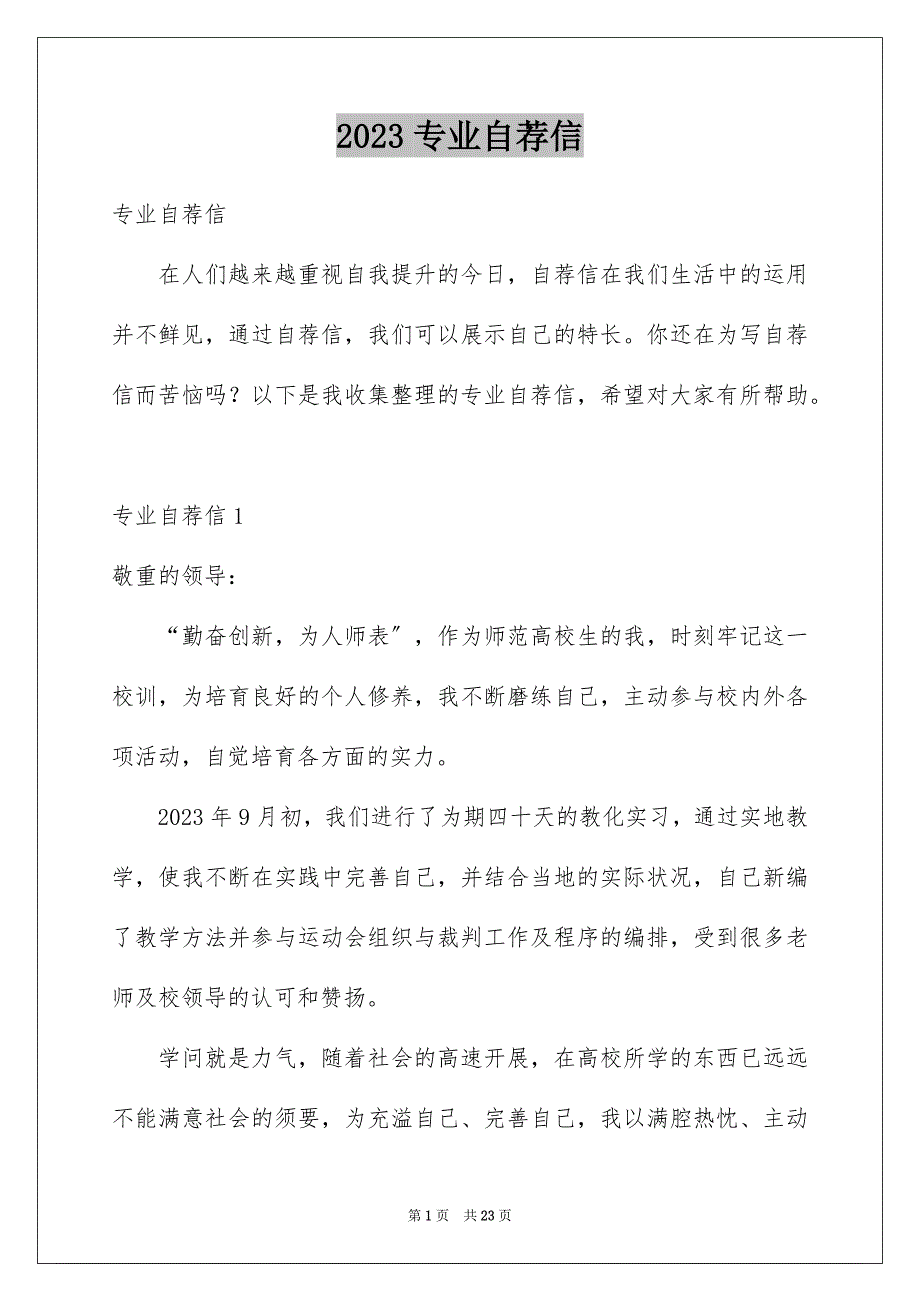 2023专业自荐信
专业自荐信
在人们越来越重视自我提升的今日，自荐信在我们生活中的运用
并不鲜见，通过自荐信，我们可以展示自己的特长。你还在为写自荐
信而苦恼吗？以下是我收集整理的专业自荐信，希望对大家有所帮助。
专业自荐信1
敬重的领导：
“勤奋创新，为人师表〞，作为师范高校生的我，时刻牢记这一
校训，为培育良好的个人修养，我不断磨练自己，主动参与校内外各
项活动，自觉培育各方面的实力。
2023年9月初，我们进行了为期四十天的教化实习，通过实地教
学，使我不断在实践中完善自己，并结合当地的实际状况，自己新编
了教学方法并参与运动会组织与裁判工作及程序的编排，受到很多老
师及校领导的认可和赞扬。
学问就是力气，随着社会的高速开展，在高校所学的东西已远远
不能满意社会的须要，为充溢自己、完善自己，我以满腔热忱、主动
第1页 共23页